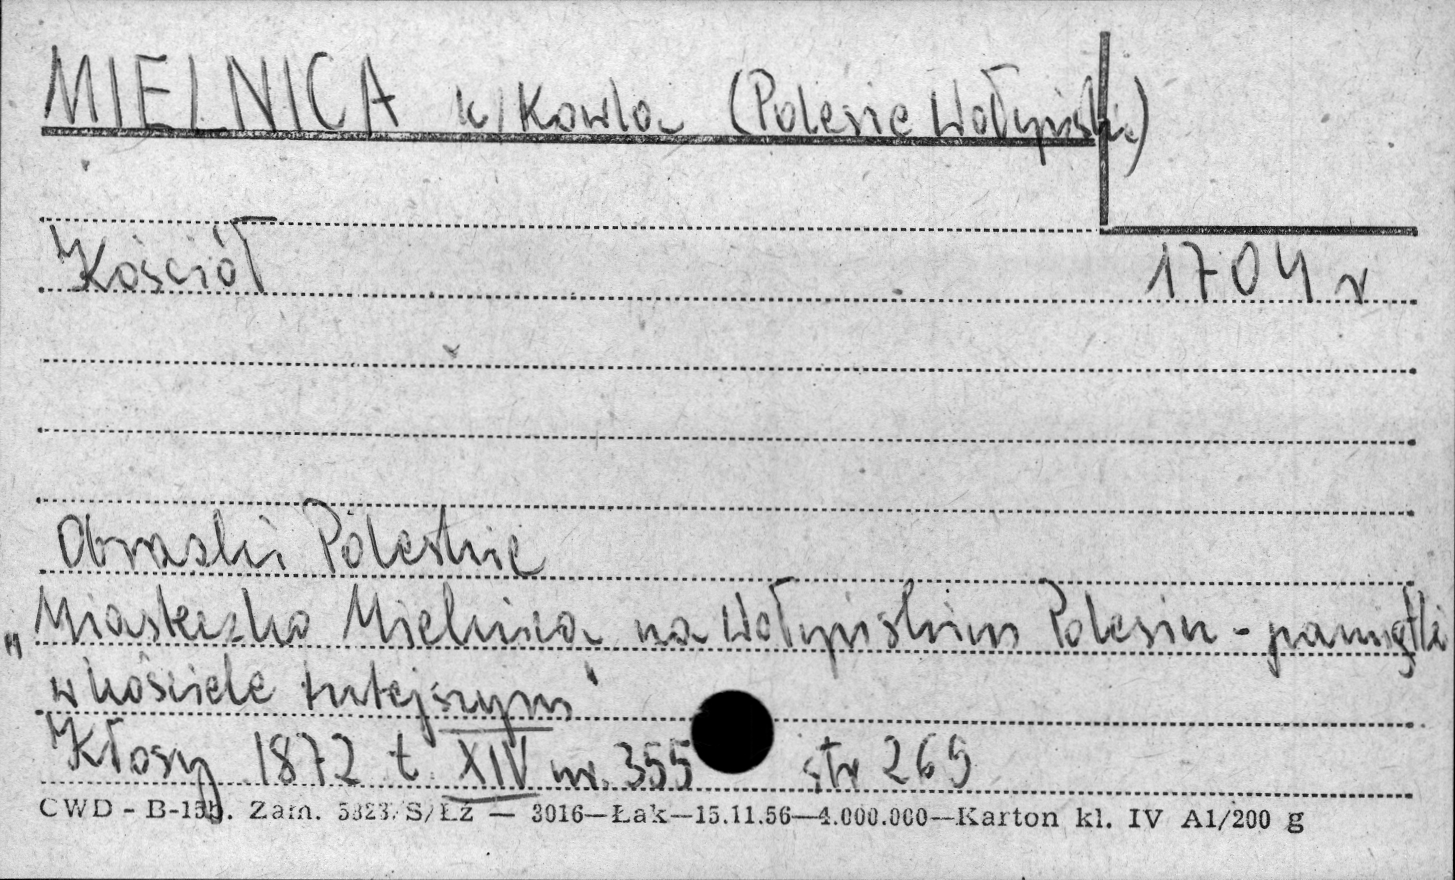 MIELNICA k/Kowla (Polesie Wołyńsk.)
Kościół 1704 r
Obrazki Poleskie
„Miasteczko Mielnica na Wołyńskim Polesiu - pamiątki
w kościele tutejszym"
Kłosy 1872 t. XIV nr. 355 str 269
CWD - B-15b. Zam. 5823/S/Łż — 3016—Łak—15.11.56—4.000.000—Karton kl. IV A1/200 g